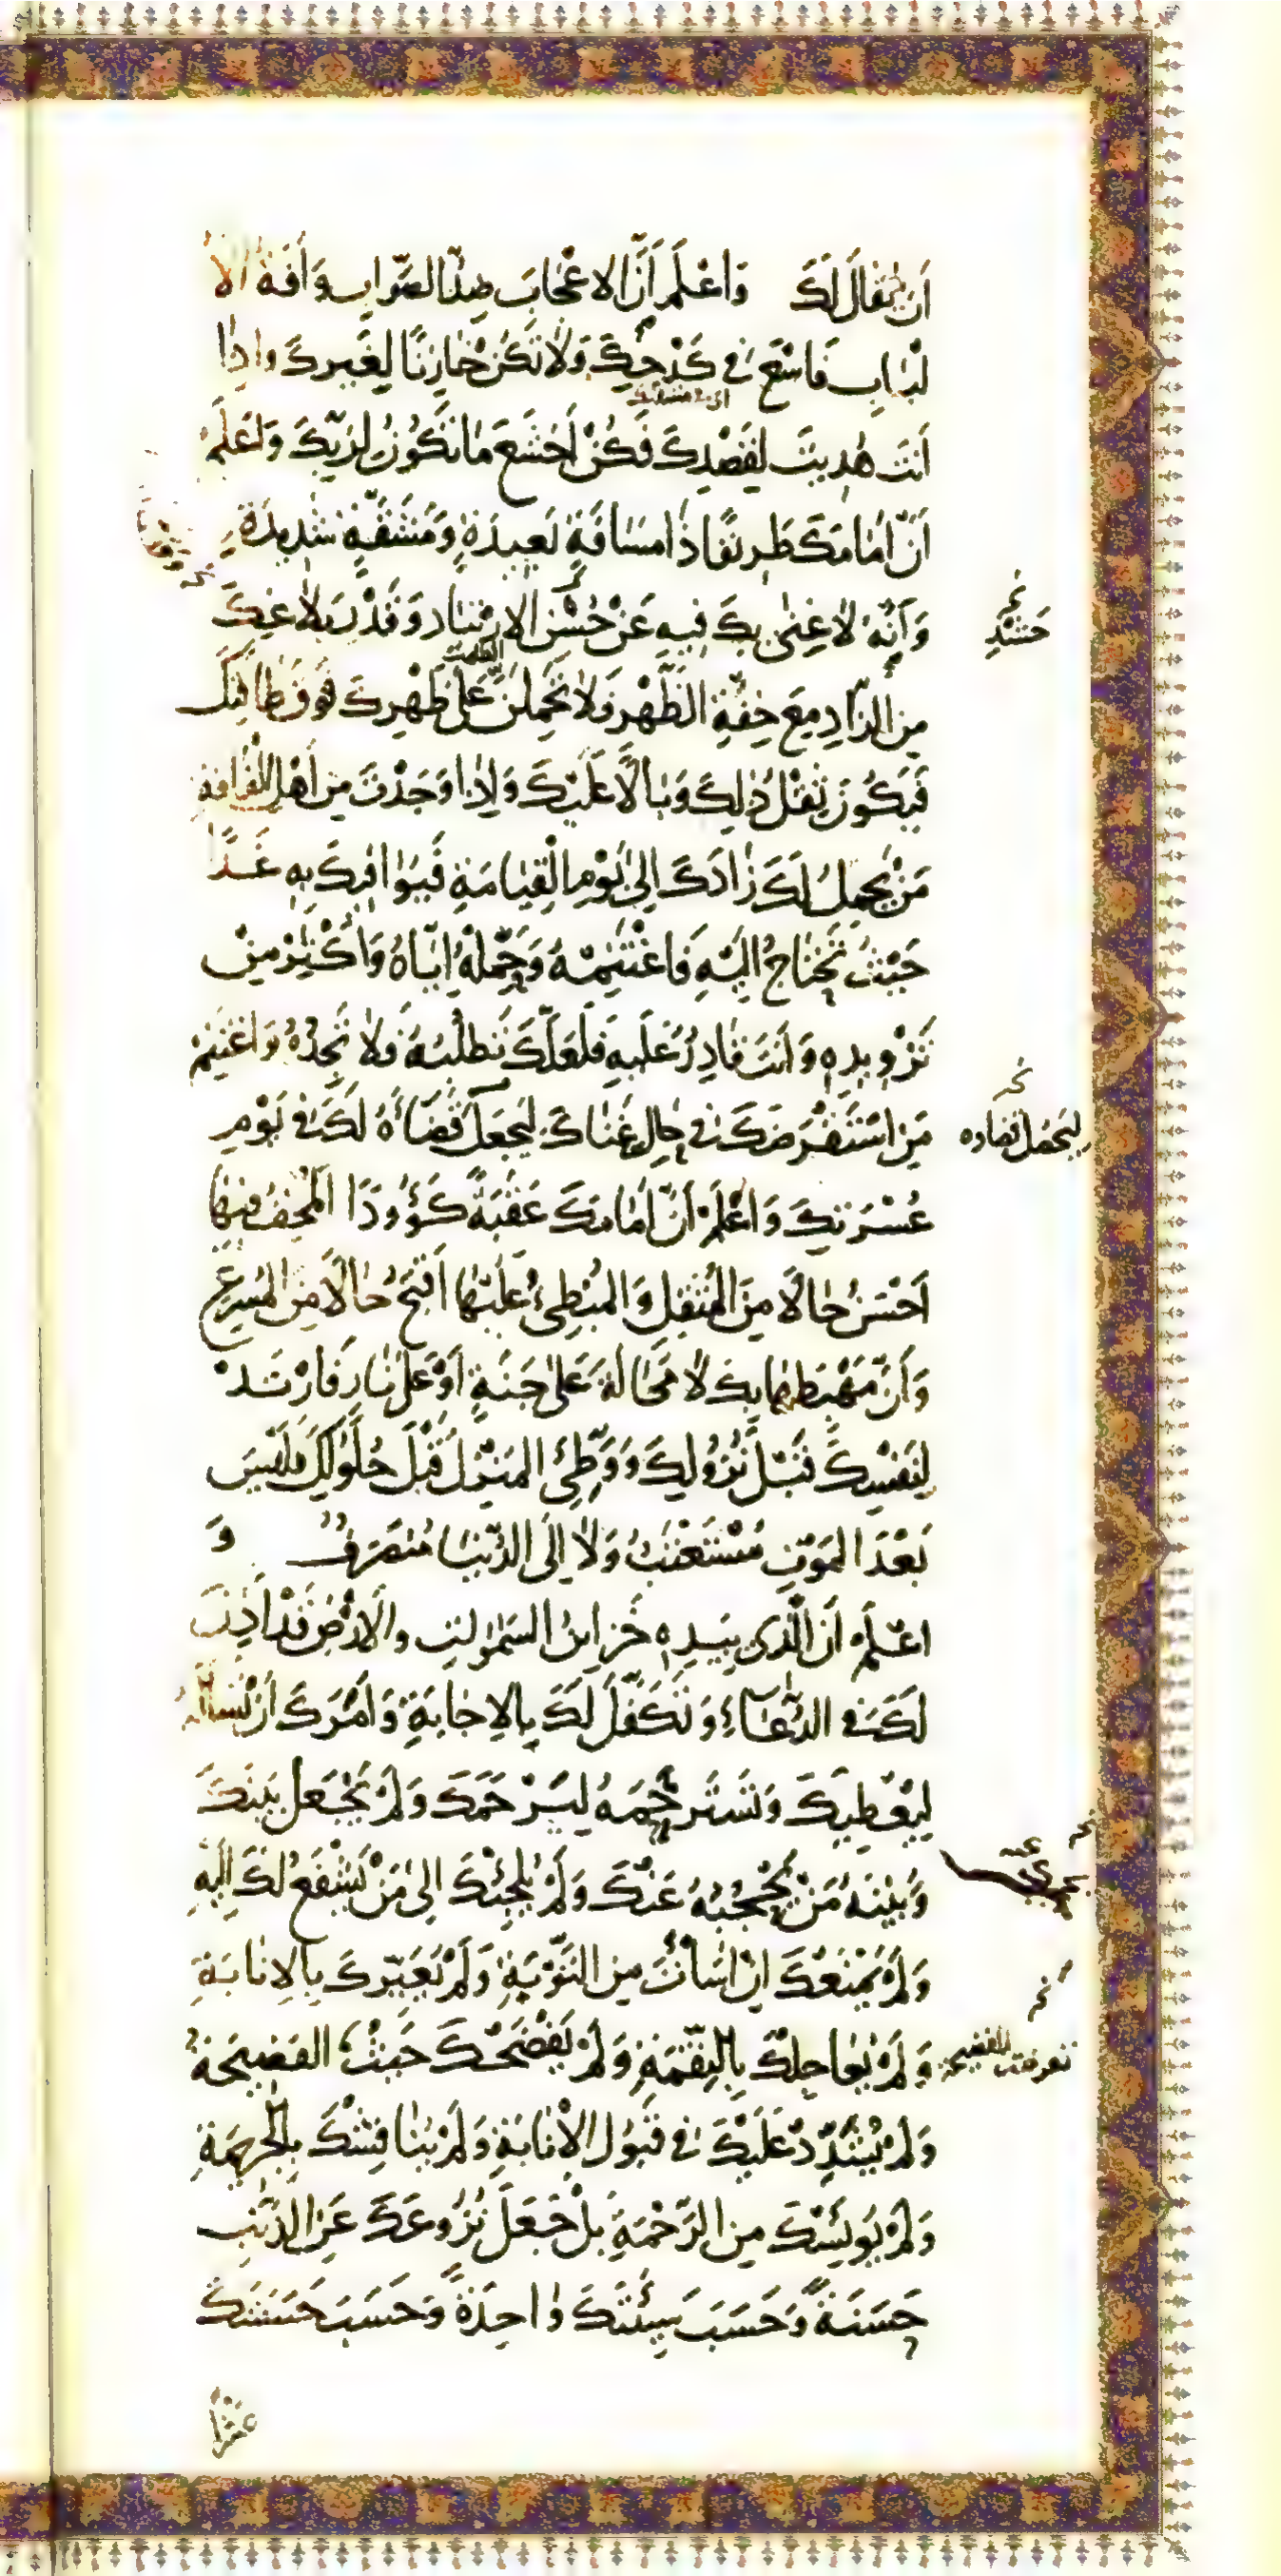 أَنْ يُقَالَ لَكَ وَاعْلَمْ أَنَّ الْإِعْجَابَ ضِدُّ الصَّوَابِ وَآفَةُ الْأَ
لْبَابِ فَاسْعَ فِي كَدْحِكَ وَلَا تَكُنْ خَازِنًا لِغَيْرِكَ وَإِذَا
أَنْتَ هُدِيتَ لِقَصْدِكَ فَكُنْ أَخْشَعَ مَا تَكُونُ لِرَبِّكَ وَاعْلَمْ
أَنَّ أَمَامَكَ طَرِيقًا ذَا مَسَافَةٍ بَعِيدَةٍ وَمَشَقَّةٍ شَدِيدَةٍ
وَأَنَّهُ لَا غِنَى بِكَ فِيهِ عَنْ حُسْنِ الْارْتِيَادِ وَقَدْرِ بَلَاغِكَ
حَسَنِ
مِنَ الزَّادِ مَعَ خِفَّةِ الظَّهْرِ وَلَا تَحْمِلَنَّ عَلَى ظَهْرِكَ فَوْقَ طَاقَتِكَ
فَيَكُونَ ثِقْلُ ذَلِكَ وَبَالًا عَلَيْكَ وَإِذَا وَجَدْتَ مِنْ أَهْلِ الْفَاقَةِ
مَنْ يَحْمِلُ لَكَ زَادَكَ إِلَى يَوْمِ الْقِيَامَةِ فَيُوَافِيكَ بِهِ غَدًا
حَيْثُ تَحْتَاجُ إِلَيْهِ فَاغْتَنِمْهُ وَحَمِّلْهُ إِيَّاهُ وَأَكْثِرْ مِنْ
تَزْوِيدِهِ وَأَنْتَ قَادِرٌ عَلَيْهِ فَلَعَلَّكَ تَطْلُبُهُ فَلَا تَجِدُهُ وَاغْتَنِمْ
مَنِ اسْتَقْرَضَكَ فِي حَالِ غِنَاكَ لِيَجْعَلَ قَضَاءَهُ لَكَ فِي يَوْمِ
عُسْرَتِكَ وَاعْلَمْ أَنَّ أَمَامَكَ عَقَبَةً كَؤُودًا الْمُخِفُّ فِيهَا
أَحْسَنُ حَالًا مِنَ الْمُثْقِلِ وَالْمُبْطِئُ عَلَيْهَا أَقْبَحُ حَالًا مِنَ الْمُسْرِعِ
وَأَنَّ مَهْبَطَهَا بِكَ لَا مَحَالَةَ عَلَى جَنَّةٍ أَوْ عَلَى نَارٍ فَارْتَدْ
لِنَفْسِكَ قَبْلَ نُزُولِكَ وَوَطِّئِ الْمَنْزِلَ قَبْلَ حُلُولِكَ فَلَيْسَ
بَعْدَ الْمَوْتِ مُسْتَعْتَبٌ وَلَا إِلَى الدُّنْيَا مُنْصَرَفٌ وَ
اعْلَمْ أَنَّ الَّذِي بِيَدِهِ خَزَائِنُ السَّمٰوَاتِ وَالْأَرْضِ قَدْ أَذِنَ
لَكَ فِي الدُّعَاءِ وَتَكَفَّلَ لَكَ بِالْإِجَابَةِ وَأَمَرَكَ أَنْ تَسْأَلَهُ
لِيُعْطِيَكَ وَتَسْتَرْحِمَهُ لِيَرْحَمَكَ وَلَمْ يَجْعَلْ بَيْنَكَ
وَبَيْنَهُ مَنْ يَحْجُبُهُ عَنْكَ وَلَمْ يُلْجِئْكَ إِلَى مَنْ يَشْفَعُ لَكَ إِلَيْهِ
وَلَمْ يَمْنَعْكَ إِنْ أَسَأْتَ مِنَ التَّوْبَةِ وَلَمْ يُعَيِّرْكَ بِالْإِنَابَةِ
وَلَمْ يُعَاجِلْكَ بِالنِّقْمَةِ وَلَمْ يَفْضَحْكَ حَيْثُ الْفَضِيحَةُ
وَلَمْ يُشَدِّدْ عَلَيْكَ فِي قَبُولِ الْإِنَابَةِ وَلَمْ يُنَاقِشْكَ بِالْجَرِيمَةِ
وَلَمْ يُؤْيِسْكَ مِنَ الرَّحْمَةِ بَلْ جَعَلَ نُزُوعَكَ عَنِ الذَّنْبِ
حَسَنَةً وَحَسَبَ سَيِّئَتَكَ وَاحِدَةً وَحَسَبَ حَسَنَتَكَ
عَشْرًا